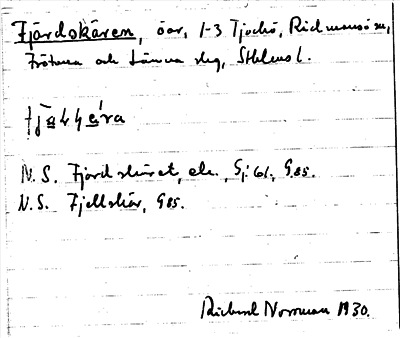 Fjärdskären, öar, 1-3 Tjockö, Rådmansö sn,
Frötuna och Länna skg, Sthlms l.
N.S. Fjärdskäret, Sj: 61, G 85.
N.S. Fjellskär, G 85.
Richard Norrman 1930.